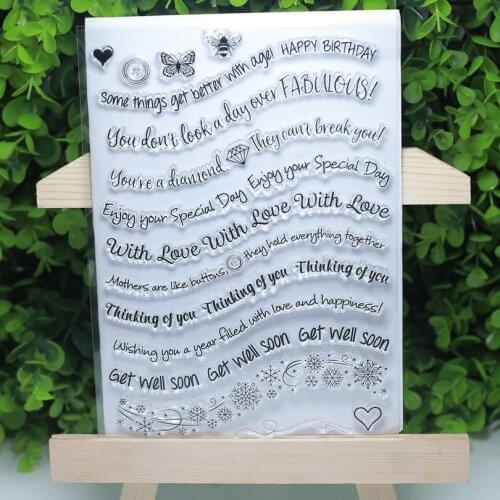 HAPPY BIRTHDAY
Some things get better with age!
You don't look a day over FABULOUS!
You're a diamond, They can't break you!
Enjoy your Special Day Enjoy your Special Day
With Love With Love With Love
Mothers are like buttons, they hold everything together
Thinking of you Thinking of you Thinking of you
Wishing you a year filled with love and happiness!
Get Well soon Get Well soon Get Well soon